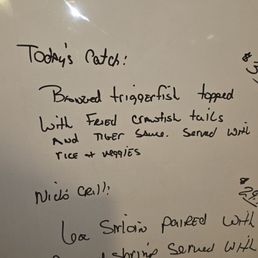 Today's Catch:
$
Bronzed triggerfish topped
with Fried crawfish tails
AND Tiger Sauce. Served with
rice + veggies
Nick's Grill:
$
6oz Sirloin paired with
shrimp served with